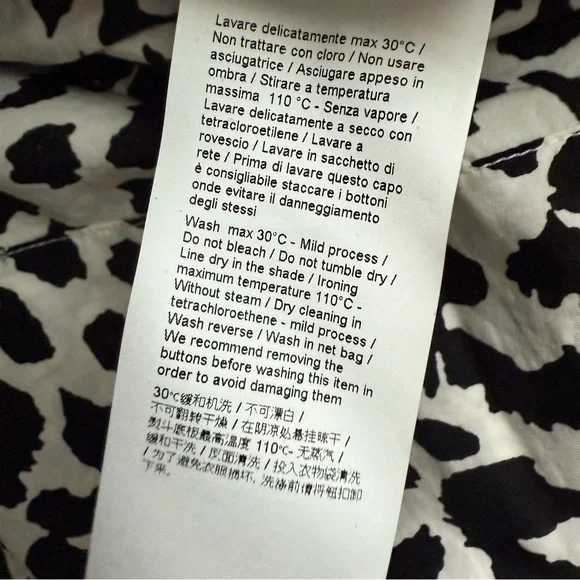 Lavare delicatamente max 30°C /
Non trattare con cloro / Non usare
asciugatrice / Asciugare appeso in
ombra / Stirare a temperatura
massima 110 °C - Senza vapore /
Lavare delicatamente a secco con
tetracloroetilene / Lavare a
rovescio / Lavare in sacchetto di
rete / Prima di lavare questo capo
è consigliabile staccare i bottoni
onde evitare il danneggiamento
degli stessi
Wash max 30°C - Mild process /
Do not bleach / Do not tumble dry /
Line dry in the shade / Ironing
maximum temperature 110°C -
Without steam / Dry cleaning in
tetrachloroethene - mild process /
Wash reverse / Wash in net bag /
We recommend removing the
buttons before washing this item in
order to avoid damaging them
30℃缓和机洗 / 不可漂白 /
不可翻转干燥 / 在阴凉处悬挂晾干 /
熨斗底板最高温度 110℃- 无蒸汽 /
缓和干洗 / 反面清洗 / 投入衣物袋清洗
/ 为了避免衣服损坏, 洗涤前请将钮扣卸
下来.